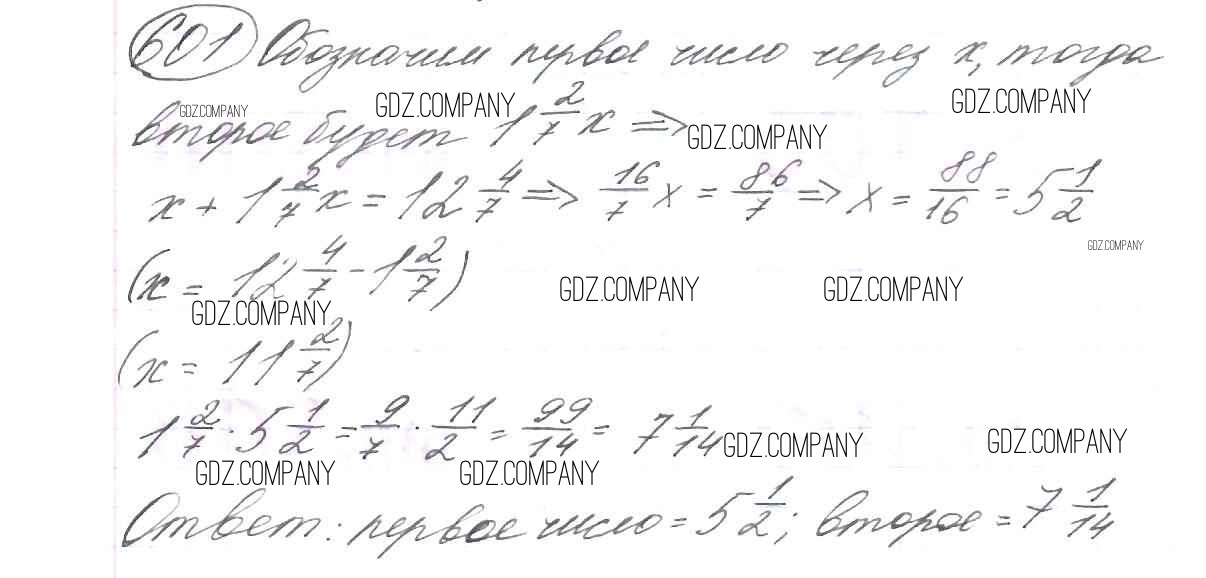 601 Обозначим первое число через x, тогда
GDZ.COMPANY GDZ.COMPANY GDZ.COMPANY
второе будет 1 2/7 x => GDZ.COMPANY
x + 1 2/7 x = 12 4/7 => 16/7 x = 86/7 => x = 88/16 = 5 1/2
GDZ.COMPANY
(x = 12 4/7 - 1 2/7) GDZ.COMPANY GDZ.COMPANY
GDZ.COMPANY
(x = 11 2/7)
1 2/7 · 5 1/2 = 9/7 · 11/2 = 99/14 = 7 1/14 GDZ.COMPANY GDZ.COMPANY
GDZ.COMPANY GDZ.COMPANY
Ответ: первое число = 5 1/2; второе = 7 1/14